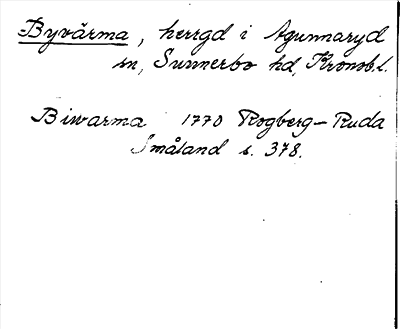 Byvärma, herrgd i Agunnaryd
sn, Sunnerbo hd, Kronob.l.
Biwarma 1770 Rogberg-Ruda
Småland s. 378.